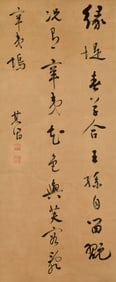 綠堤春草合王孫自留翫
況有辛夷花色與芙蓉亂
辛夷塢 其昌